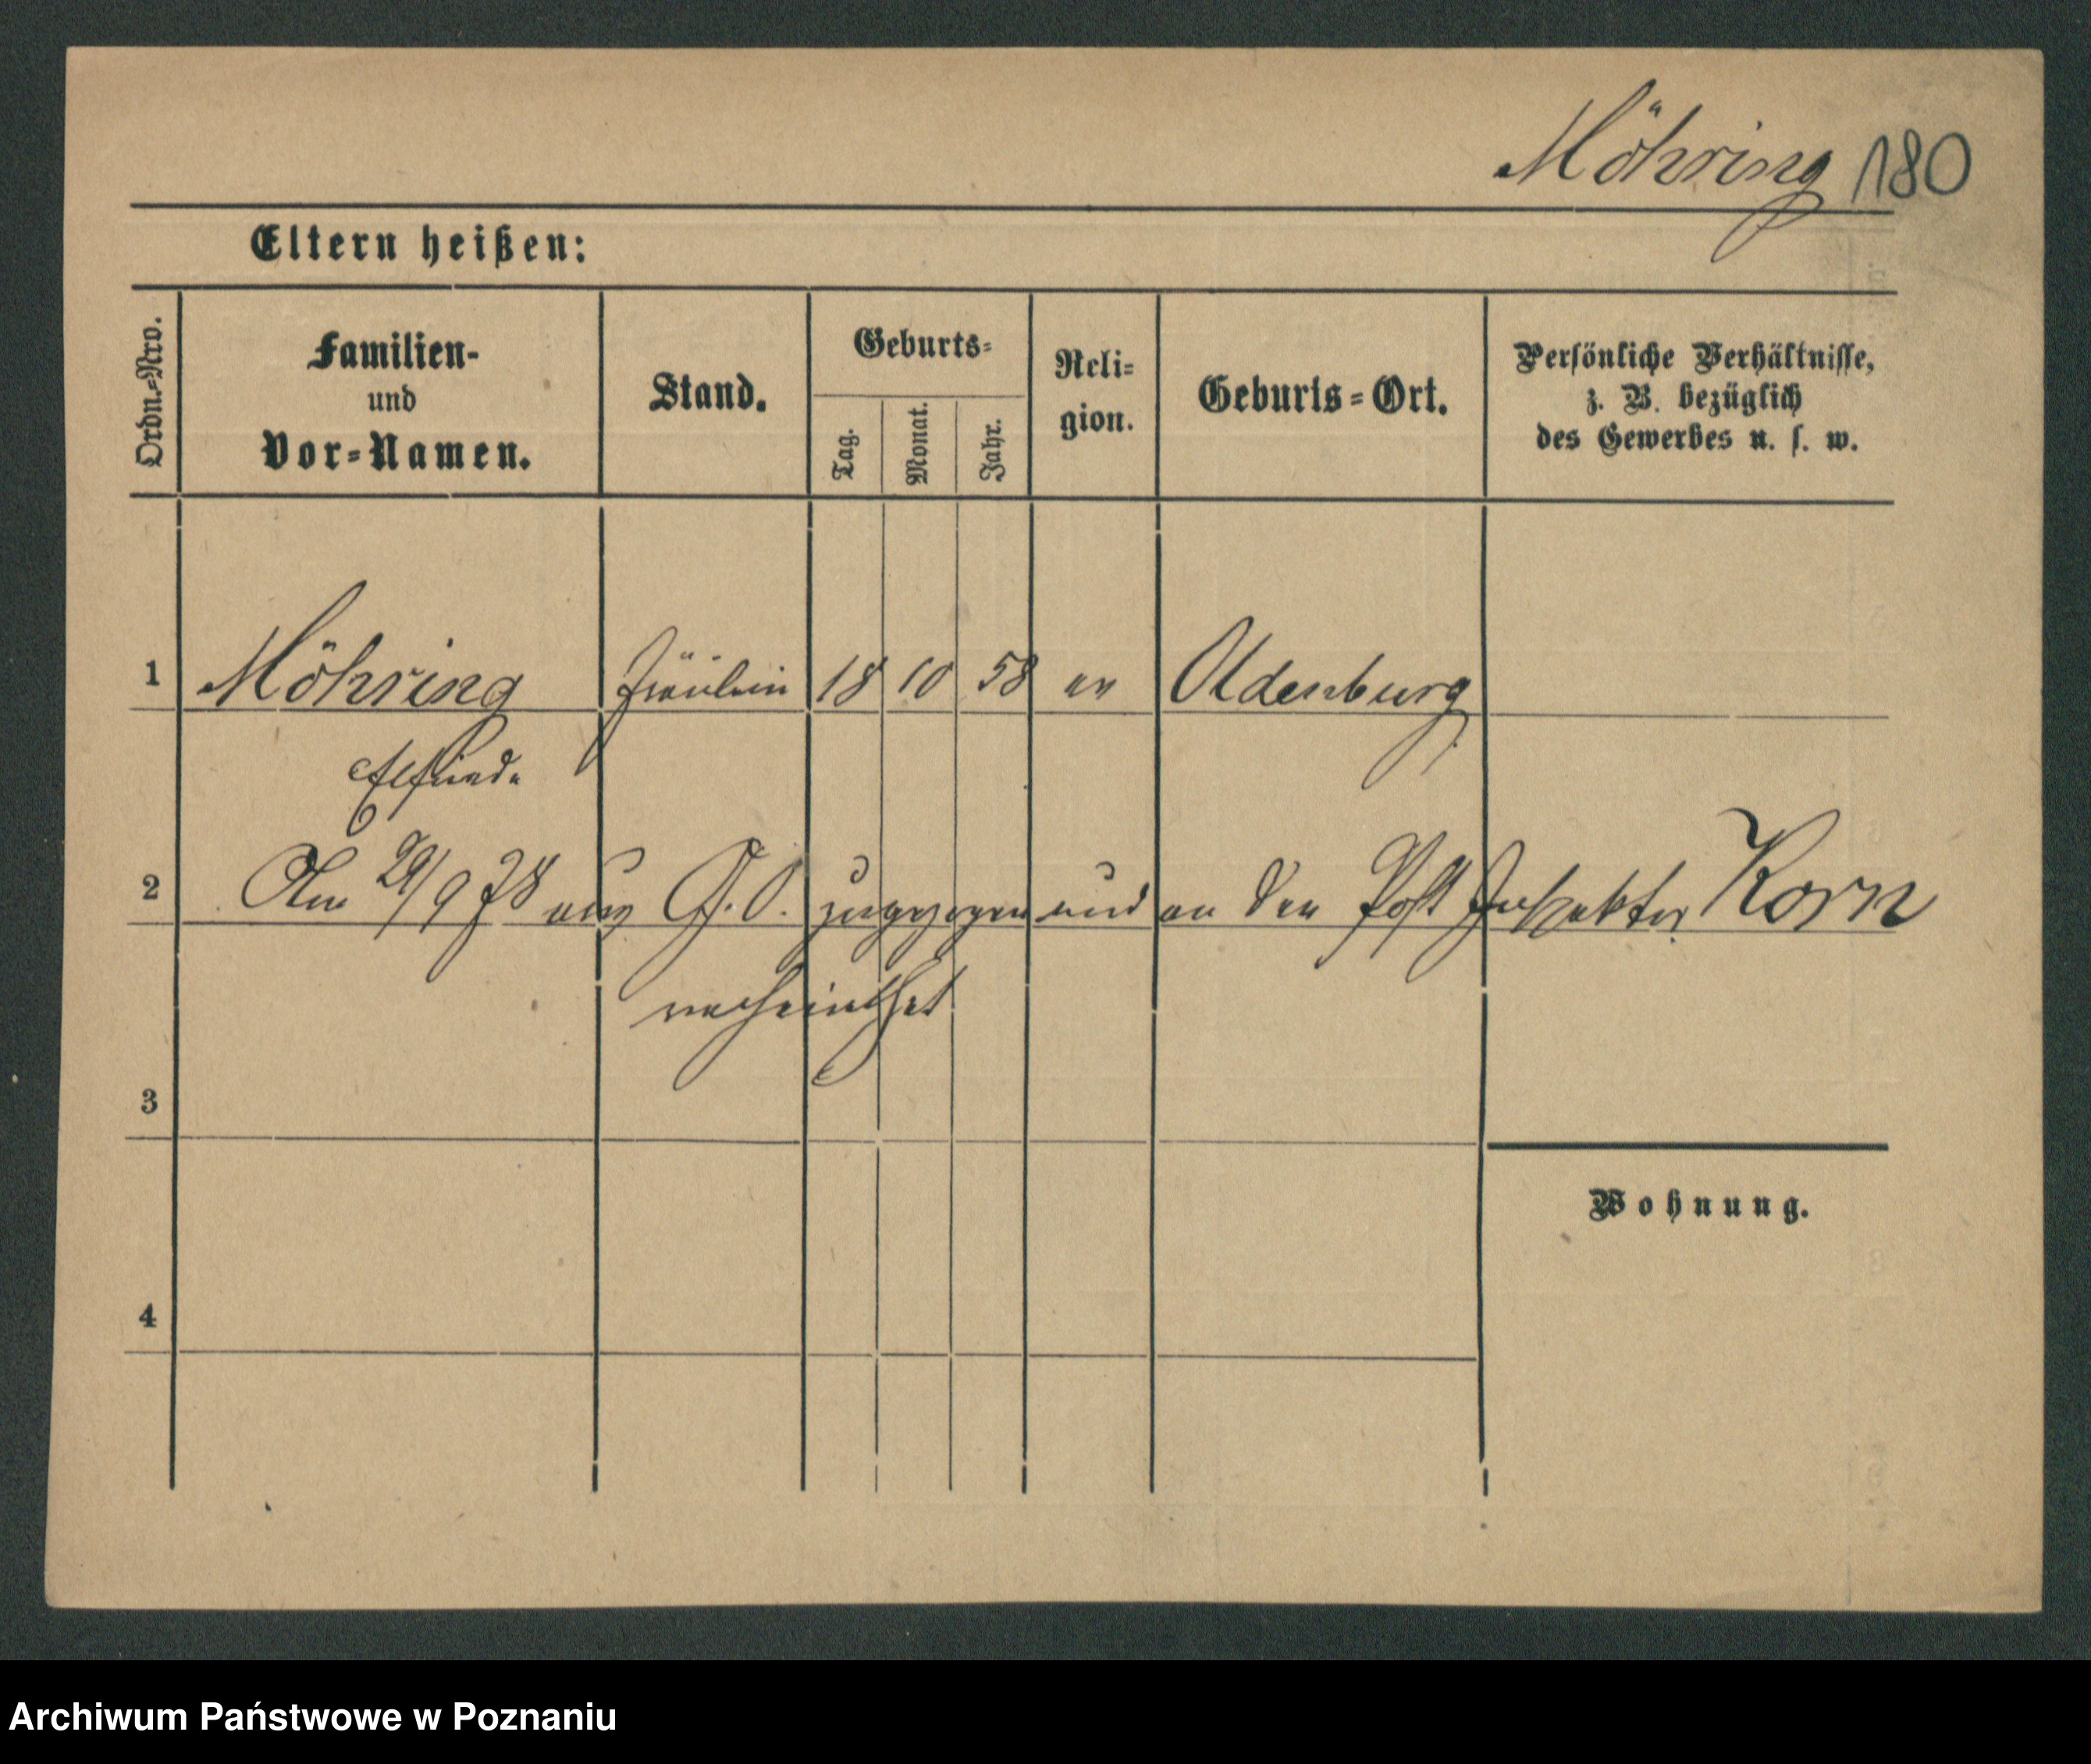 Möhring 180
Eltern heißen:
Ordn.=Nro.
Familien-
und
Vor=Namen.
Stand.
Geburts=
Tag.
Monat.
Jahr.
Reli=
gion.
Geburts=Ort.
Persönliche Verhältnisse,
z. B. bezüglich
des Gewerbes u. s. w.
1 Möhring Fräulein 18 10 58 ev Oldenburg
Elfriede
2 Am 29/9 78 aus G. O. zugezogen und an den Post Inspektor Korn
verheirathet
3
Wohnung.
4
Archiwum Państwowe w Poznaniu